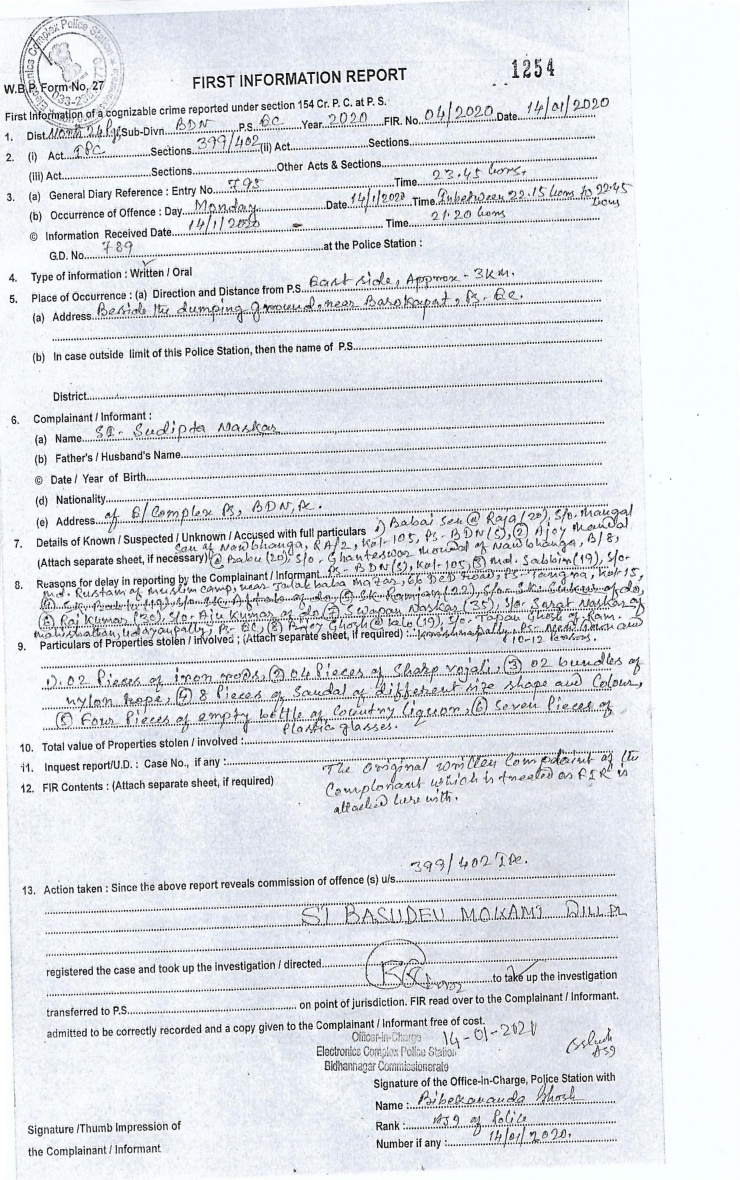 Electronics Complex Police Station
W.B.P. Form No, 27
FIRST INFORMATION REPORT
1254
First Information of a cognizable crime reported under section 154 Cr. P. C. at P. S.
1. Dist. North 24 Pgs Sub-Divn. BDN P.S. EC Year 2020 FIR. No. 04/2020 Date 14/01/2020
2. (i) Act IPC Sections 399/402 (ii) Act Sections
(iii) Act Sections Other Acts & Sections
3. (a) General Diary Reference : Entry No. 795 Time 23.45 hrs.
(b) Occurrence of Offence : Day Monday Date 14/1/2020 Time Inbetween 22.15 hrs to 22.45 hrs
© Information Received Date 14/1/2020 - Time 21.20 hrs
G.D. No. 789 at the Police Station :
4. Type of information : Written / Oral
5. Place of Occurrence : (a) Direction and Distance from P.S East side, Approx - 3 Km.
(a) Address Beside the dumping ground, near Ps. EC.
(b) In case outside limit of this Police Station, then the name of P.S
District
6. Complainant / Informant :
(a) Name SI - Sudipta Naskar
(b) Father's / Husband's Name
© Date / Year of Birth
(d) Nationality
(e) Address of E/Complex Ps, BDN, Pc.
7. Details of Known / Suspected / Unknown / Accused with full particulars 1) Babai Sen @ Raja (20), S/o. Mangal
Sen of Nawbhanga, RA/2, Kol-105, Ps- BDN(S), (2) Ajoy Mondal
(Attach separate sheet, if necessary) @ Babu (20), S/o. Ghanteswar Mondal of Nawbhanga, B/8,
8. Reasons for delay in reporting by the Complainant / Informant Ps- BDN(S), Kol-105, (3) Md. Sabbir (19), S/o-
Md. Rustam of Muslim Camp, near 66 DCD Road, Ps- Tangra, Kol-15,
(6) Raj Kumar (30), S/o. Kumar of do, (7) Swapan Naskar (35), S/o. Sarat Naskar of
Ps- EC, (8) Ghosh @ (19), S/o- Tapan Ghosh of
9. Particulars of Properties stolen / involved : (Attach separate sheet, if required) : Ps- and
10-12 Persons.
1). 02 Pieces of iron rods, (2) 04 Pieces of Sharp vojali, (3) 02 bundles of
nylon rope, (4) 8 Pieces of Sandal of different size shape and Colour,
(5) Four Pieces of empty bottle of Country liquor, (6) Seven Pieces of
Plastic glasses.
10. Total value of Properties stolen / involved :
11. Inquest report/U.D. : Case No., if any :
12. FIR Contents : (Attach separate sheet, if required)
The Original written Complaint of the
Complainant which is treated as FIR is
attached here with.
13. Action taken : Since the above report reveals commission of offence (s) u/s 399/402 IPC.
SI BASUDEV MOKAMI
registered the case and took up the investigation / directed
to take up the investigation
transferred to P.S. on point of jurisdiction. FIR read over to the Complainant / Informant.
admitted to be correctly recorded and a copy given to the Complainant / Informant free of cost.
Officer-in-Charge 14-01-2020
Electronics Complex Police Station
Bidhannagar Commissionerate
Signature of the Office-in-Charge, Police Station with
Name : Bibekananda Ghosh
Rank : ASI of Police
Number if any : 14/01/2020.
Signature /Thumb Impression of
the Complainant / Informant